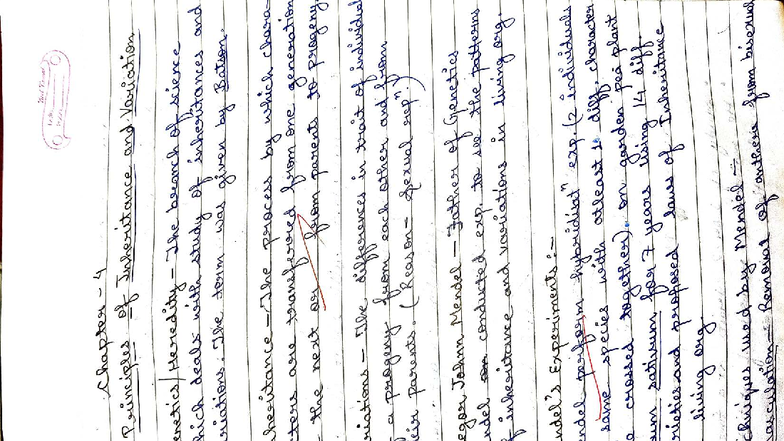 Chapter - 4
Principles of Inheritance and Variation
enetics/Heredity - The branch of science
hich deals with study of inheritances and
riations. The term was given by Batson.
nheritance - The process by which chara-
ters are transferred from one generation
the next or from parents to progeny.
riations - The differences in trait of individual
a progeny from each other and from
eir parents. (Reason - Sexual repⁿ)
egor Johnn Mendel - Father of Genetics
ndel conducted exp. to see the patterns
f inheritance and variations in living org.
ndel's Experiments :-
ndel perform hybridisⁿ exp. (2 individuals
same species with atleast 1 diff character
e crossed together). on garden pea plant
um sativum for 7 years using 14 diff
rieties and proposed laws of Inheritance
living org.
chniques used by Mendel -
asculation - Removal of anthers from bisexual